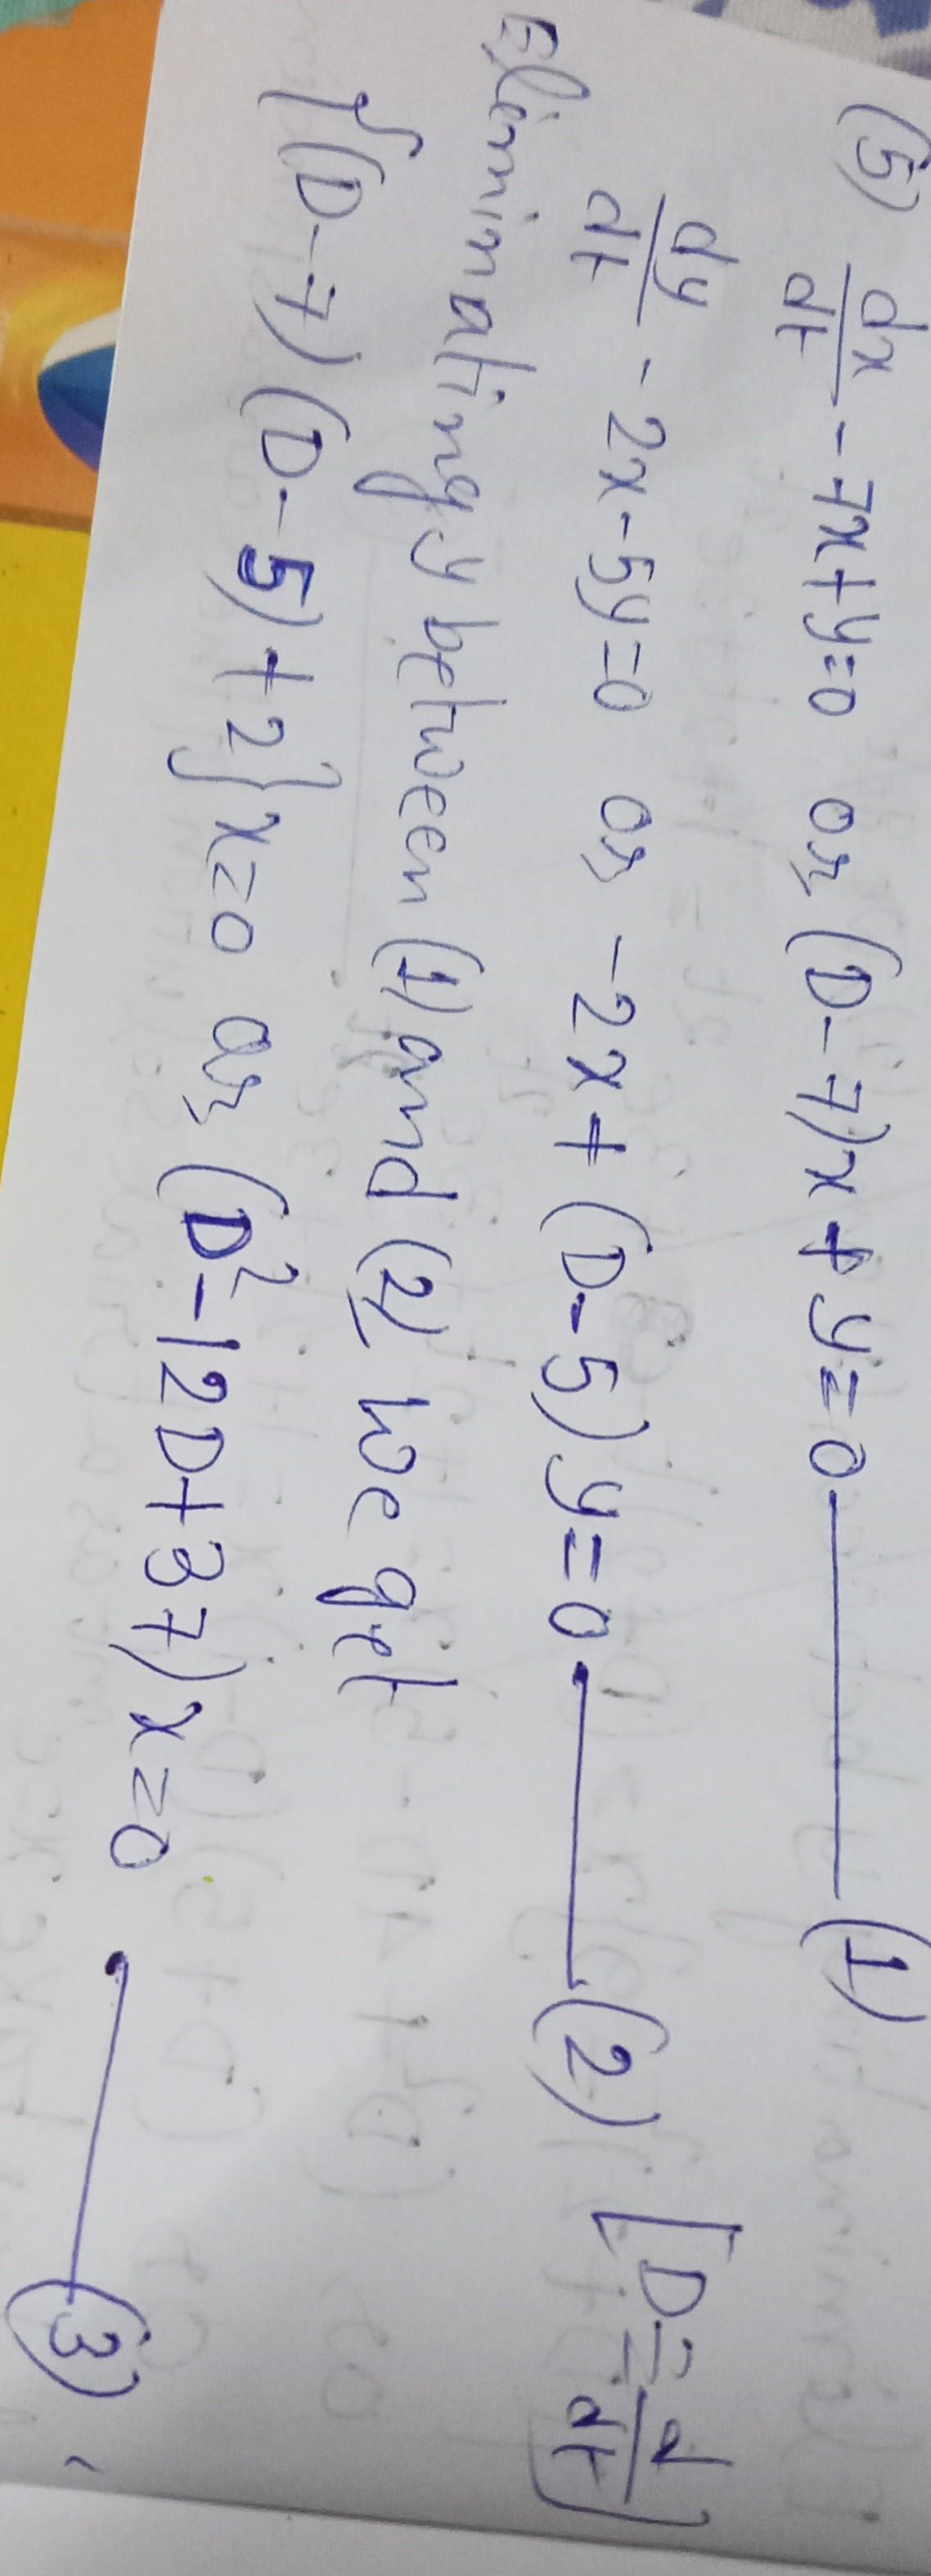 (5) dx/dt - 7x + y = 0 or, (D - 7)x + y = 0 — (1)
dy/dt - 2x - 5y = 0 or -2x + (D - 5)y = 0 — (2) [D ≡ d/dt]
Eliminating y between (1) and (2) we get
{(D - 7)(D - 5) + 2}x = 0 or, (D² - 12D + 37)x = 0 — (3)